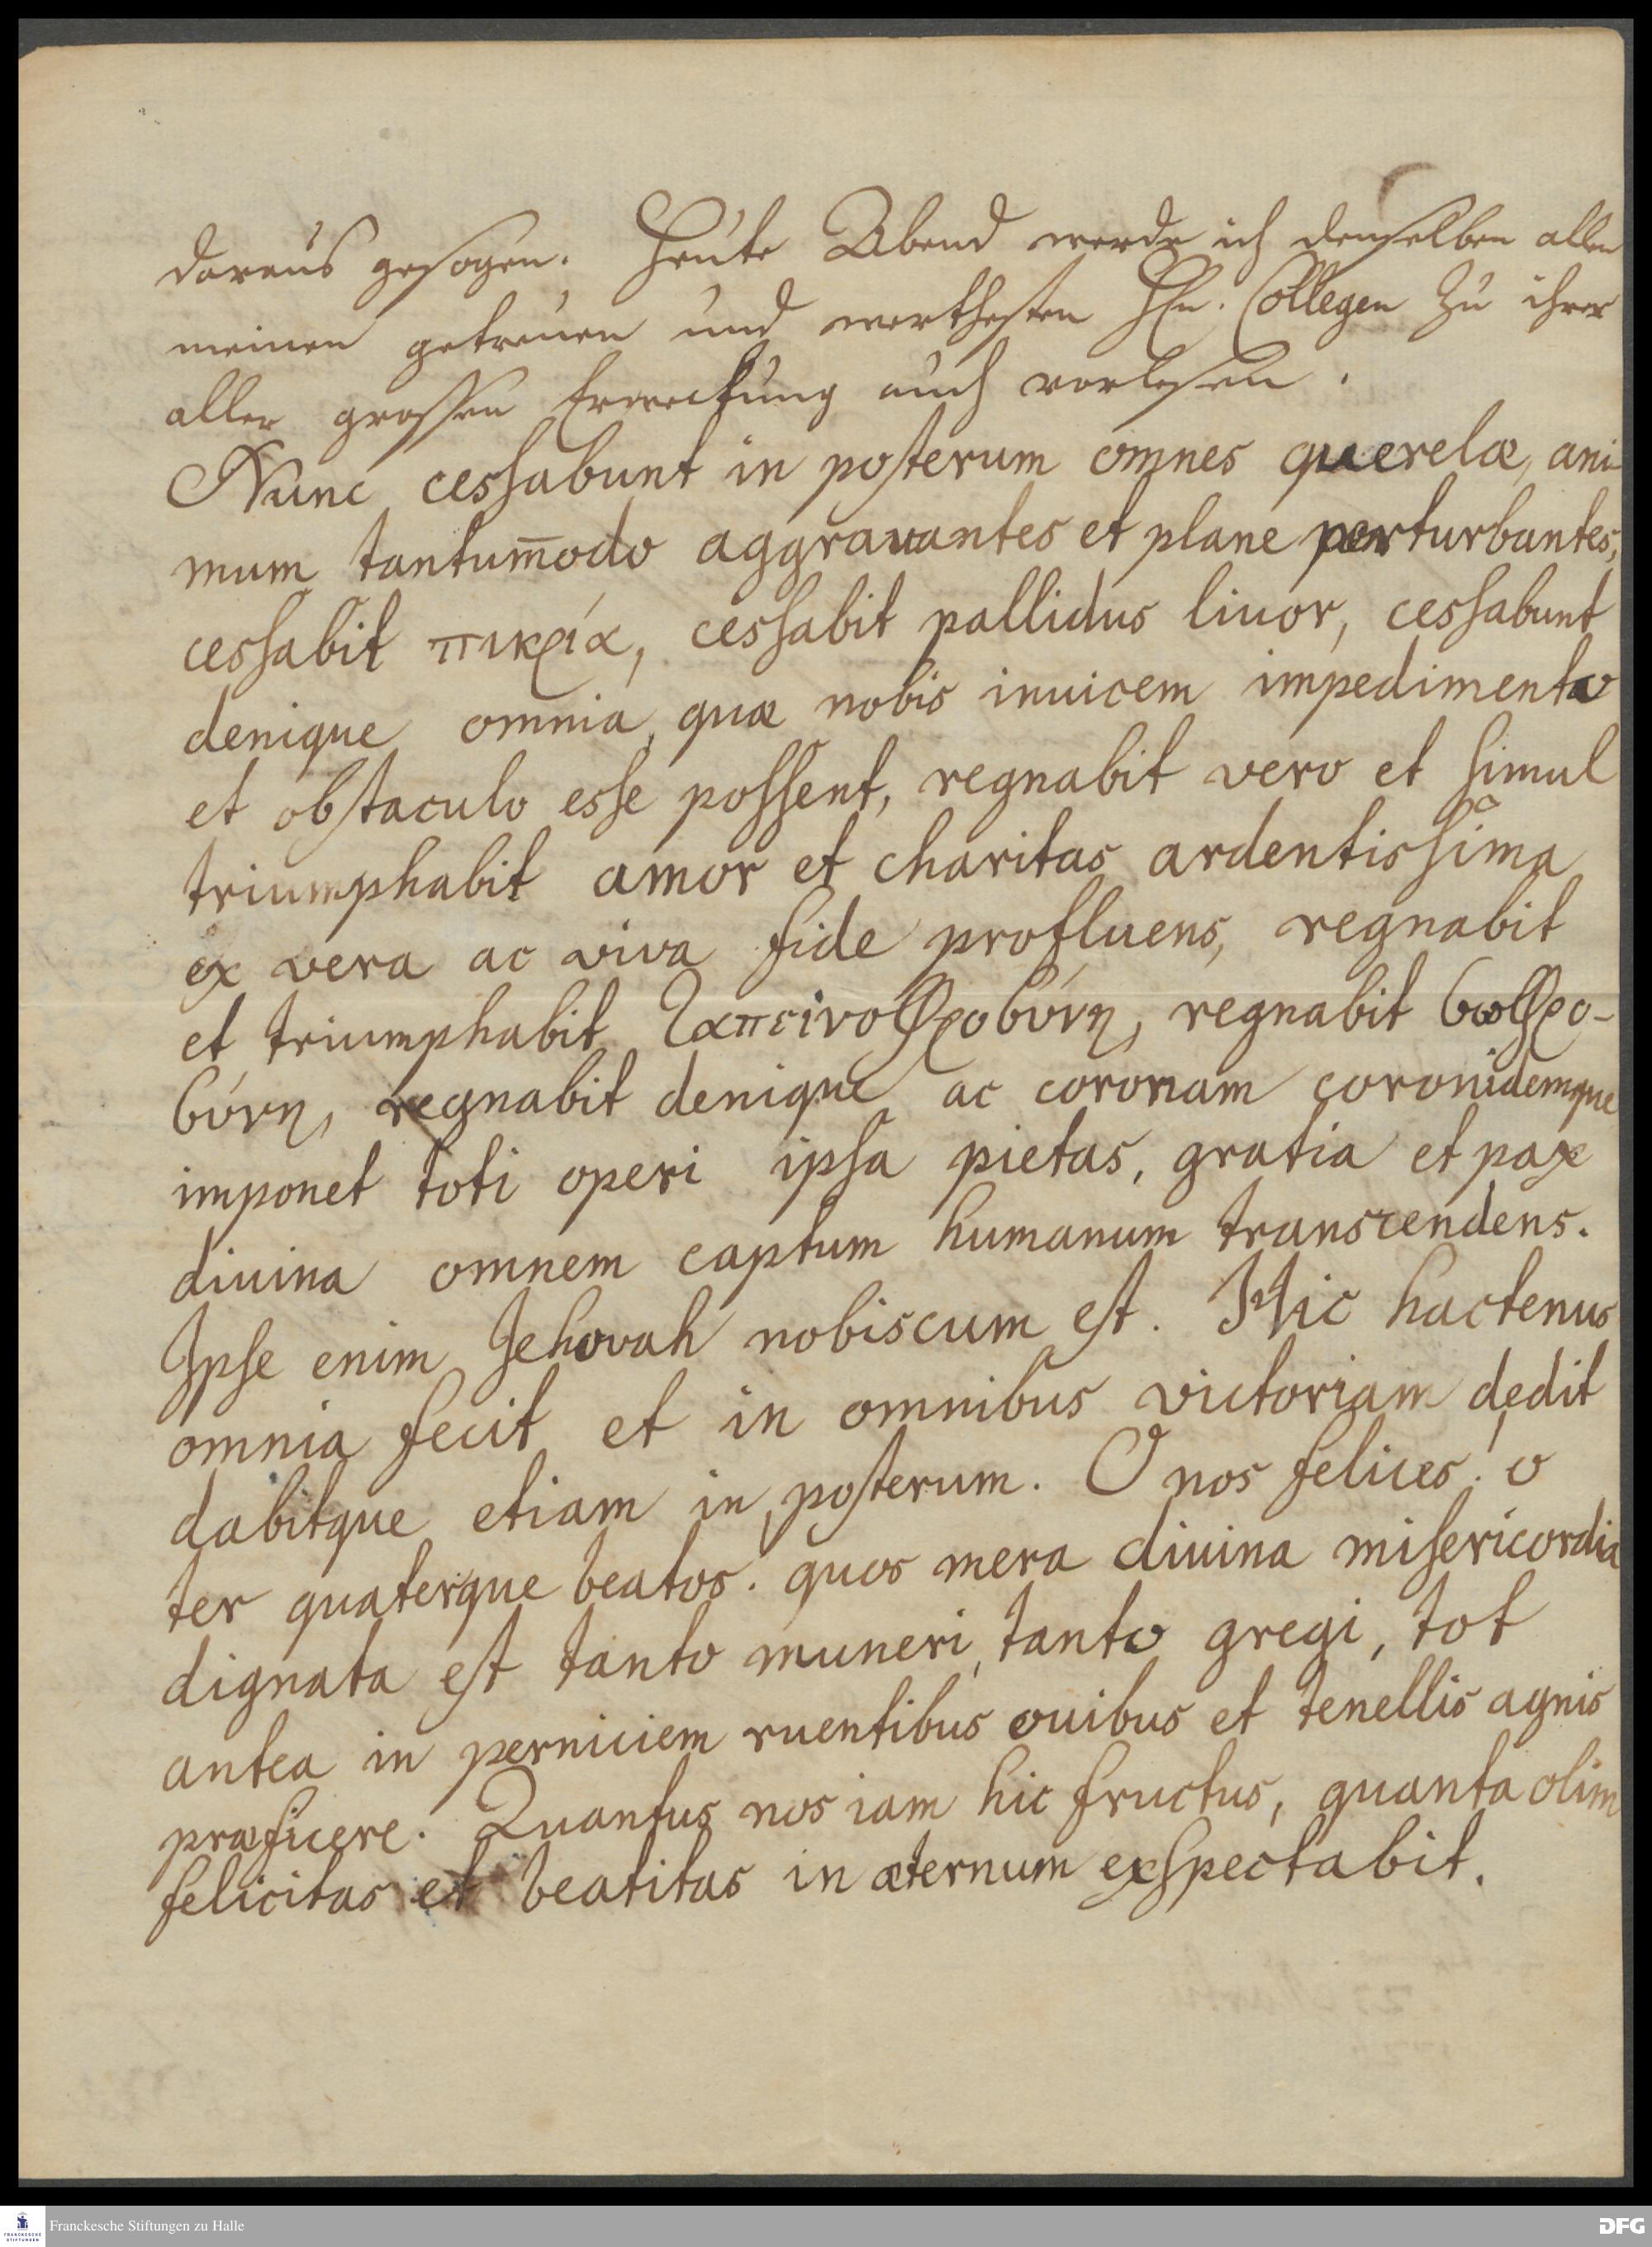 daraus gesogen. Heute Abend werde ich denselben allen
meinen getreuen und werthesten HEn. Collegen zu ihrer
aller grossen Erweckung auch vorlesen.
Nunc cessabunt in posterum omnes querelæ, ani-
mum tantum̅odo aggrauantes et plane perturbantes,
cessabit πικρία, cessabit pallidus liuor, cessabunt
denique omnia, quæ nobis inuicem impedimento
et obstaculo esse possent, regnabit vero et simul
triumphabit amor et charitas ardentissima
ex vera ac viva fide profluens, regnabit
et triumphabit ταπεινοφροσύνη, regnabit σωφρο-
σύνη, regnabit denique ac coronam coronidemque
imponet toti operi ipsa pietas, gratia et pax
diuina omnem captum humanum transcendens.
Ipse enim Jehovah nobiscum est. Hic hactenus
omnia fecit et in omnibus victoriam dedit
dabitque etiam in posterum. O nos felices! o
ter quaterque beatos. quos mera diuina misericordia
dignata est tanto muneri, tanto gregi, tot
antea in perniciem ruentibus ouibus et tenellis agnis
præficere. Quantus nos iam hic fructus, quanta olim
felicitas et beatitas in æternum exspectabit.
FRANCKESCHE
STIFTUNGEN
Franckesche Stiftungen zu Halle
DFG